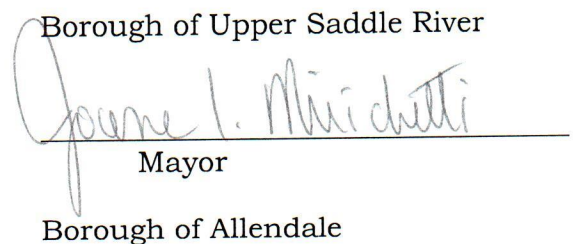 Borough of Upper Saddle River
Joanne L. Minichetti
Mayor
Borough of Allendale